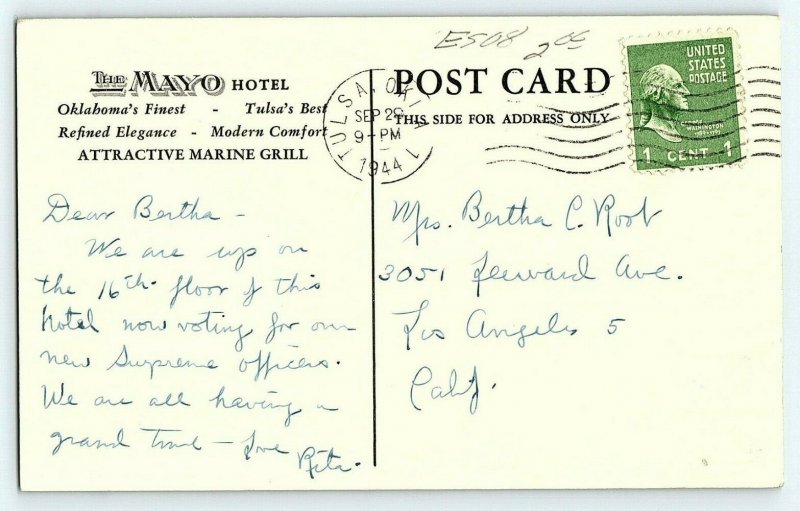 E508 20¢
THE MAYO HOTEL
Oklahoma's Finest - Tulsa's Best
Refined Elegance - Modern Comfort
ATTRACTIVE MARINE GRILL
TULSA, OKLA. 1
SEP 29
9-PM
1944
POST CARD
THIS SIDE FOR ADDRESS ONLY
UNITED
STATES
POSTAGE
WASHINGTON
1 CENT 1
Dear Bertha -
We are up on
the 16th floor of this
hotel now voting for our
new Supreme officers.
We are all having a
grand time - Love
Rita.
Mrs. Bertha C. Root
3051 Leeward Ave.
Los Angeles 5
Calif.